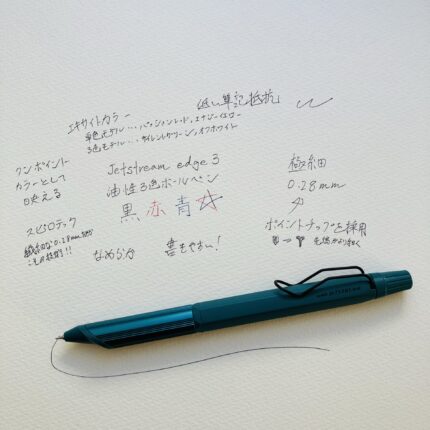 低い筆記抵抗
エキサイトカラー
単色モデル…パッションレッド、エナジーイエロー
3色モデル…サイレントグリーン、オフホワイト
ワンポイント
カラーとして
映える
Jetstream edge 3
油性3色ボールペン
黒 赤 青 ☆
極細
0.28mm
スピロテック
繊細な0.28mm
これは技術!!
なめらか
書きやすい!
ポイントチップを採用